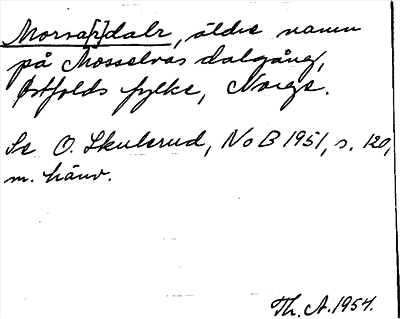 Morsa[r]dalr, äldre namn
på Mosselvas dalgång,
Østfolds fylke, Norge.
Se O. Skulerud, NoB 1951, s. 120,
m. hänv.
Th. A. 1954.